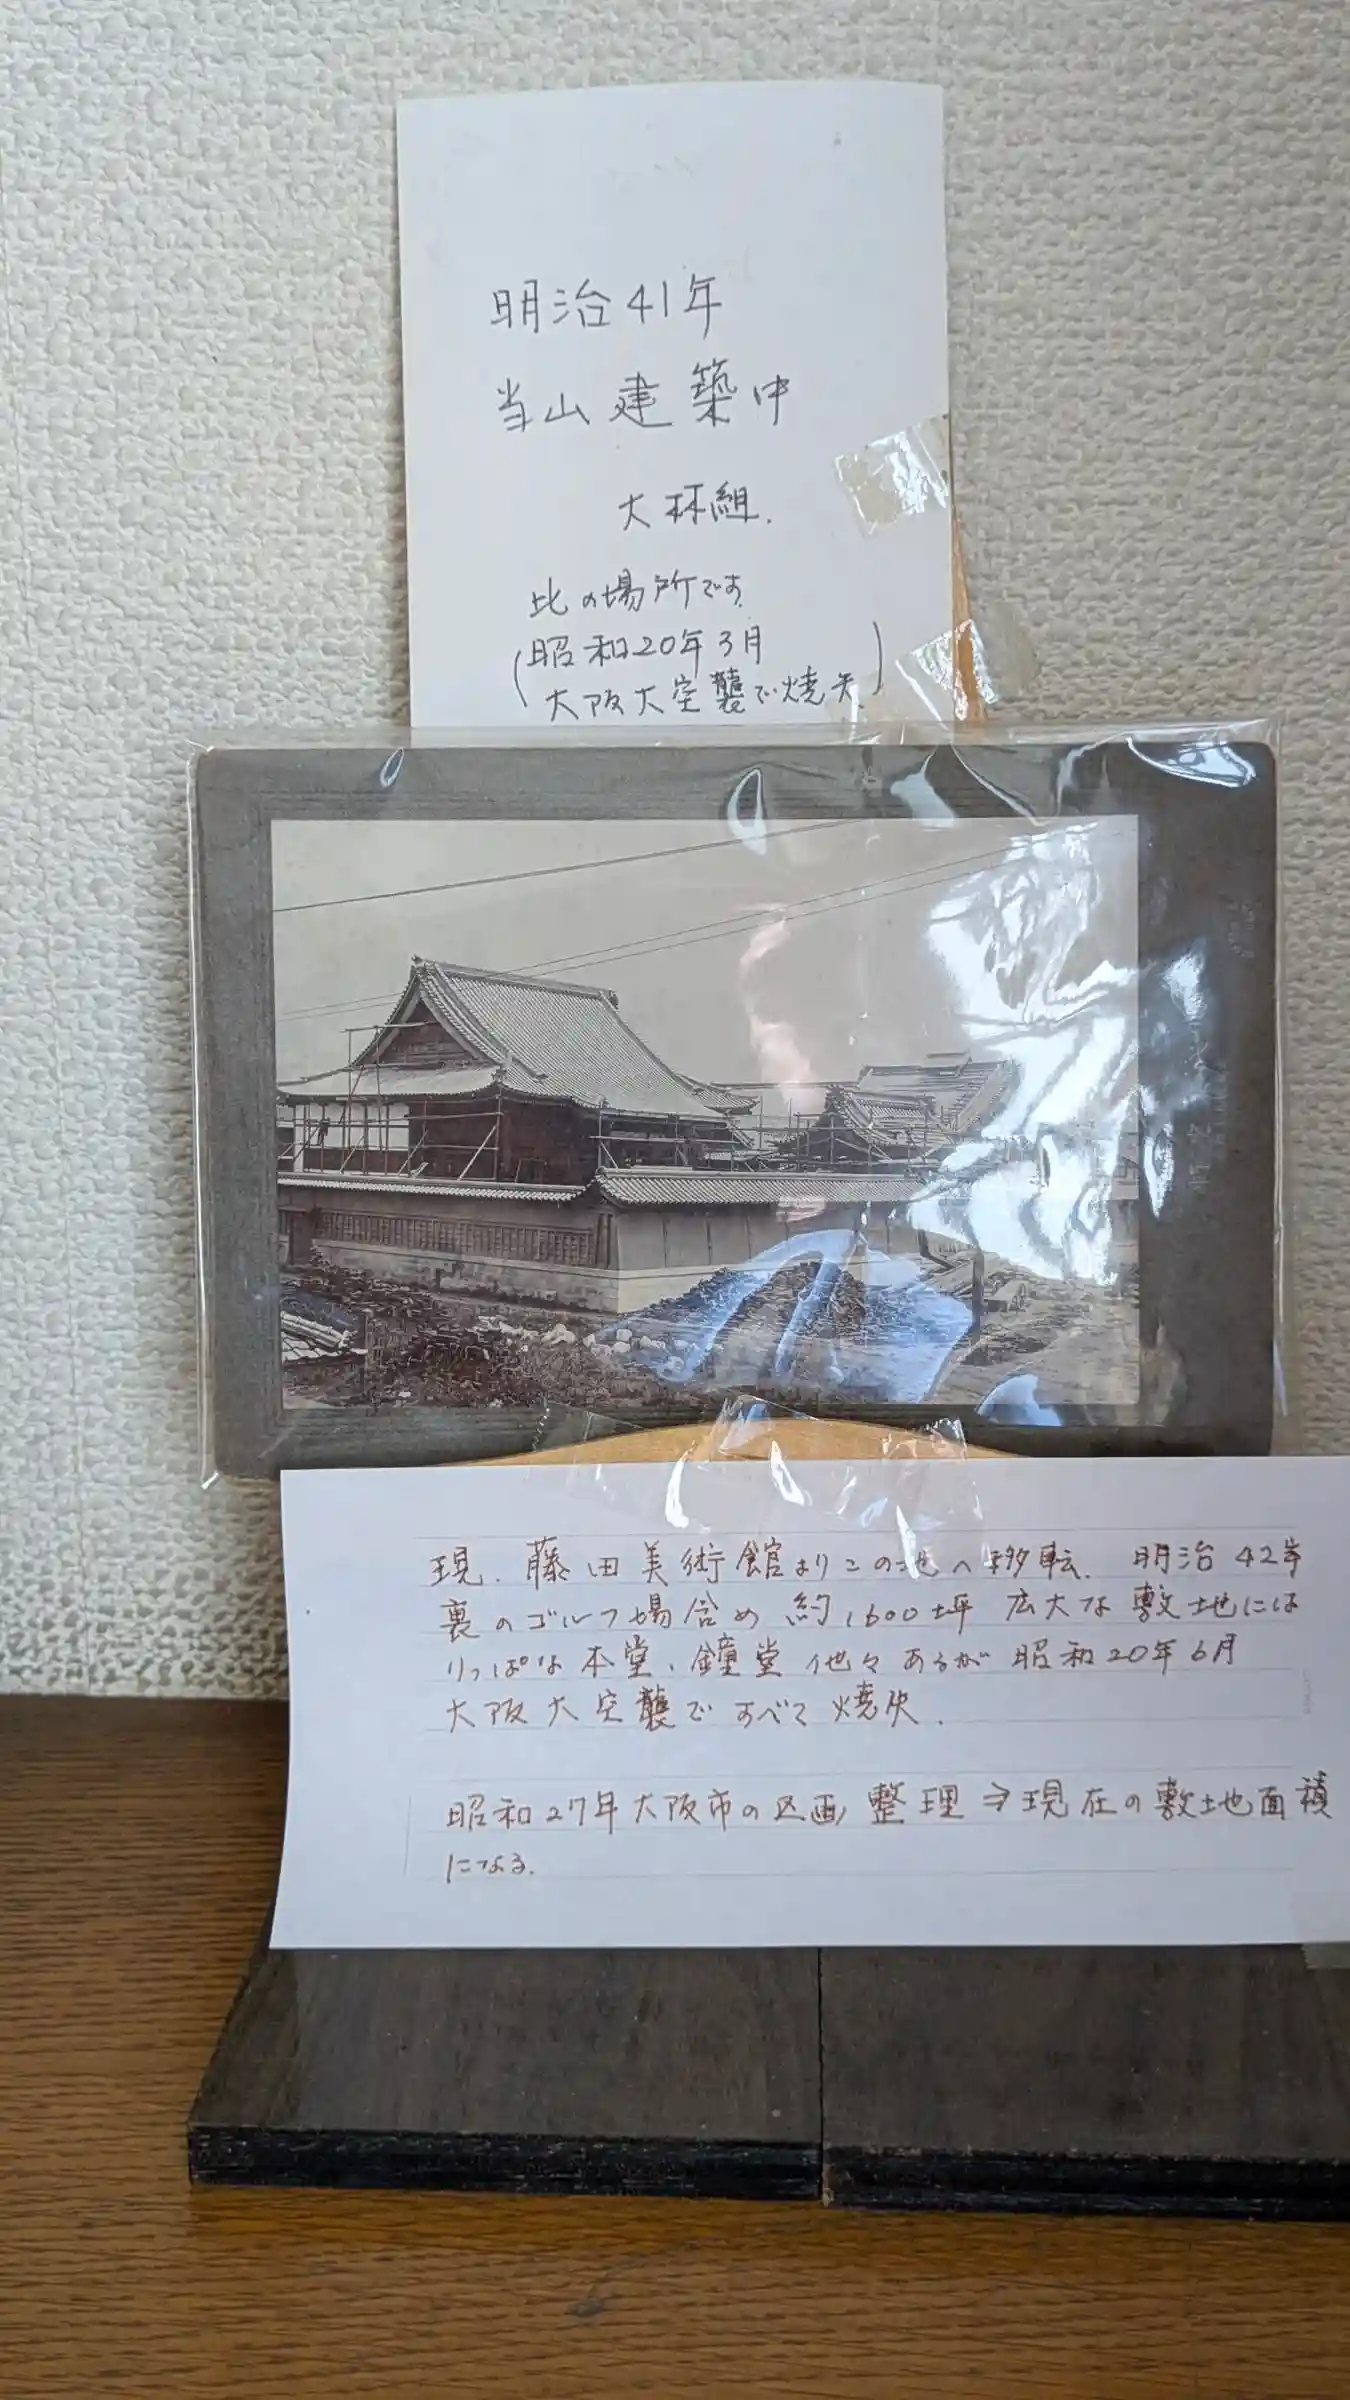 明治41年
当山建築中
大林組.
比の場所です
(昭和20年3月
大阪大空襲で焼失.)
現.藤田美術館よりこの地へ移転.明治42年
裏のゴルフ場含め約1600坪 広大な敷地には
りっぱな本堂、鐘堂他々あるが昭和20年6月
大阪大空襲ですべて焼失.
昭和27年大阪市の区画整理⇒現在の敷地面積
になる.